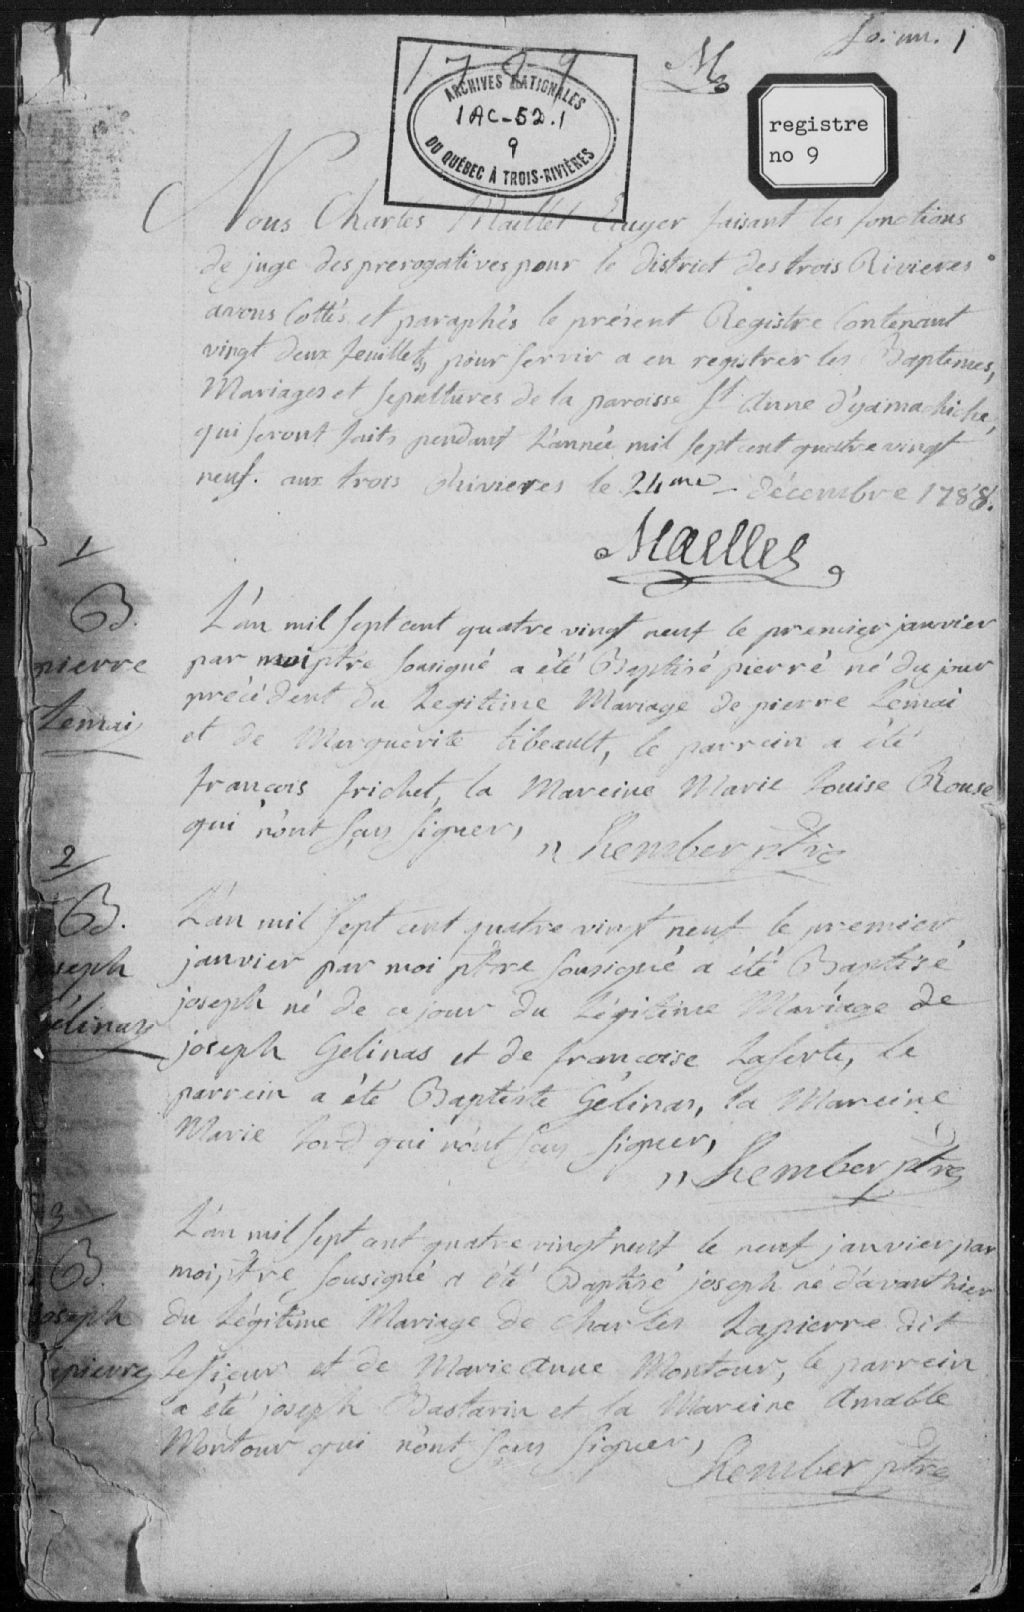 fo: un. 1
M
1789
ARCHIVES NATIONALES
1AC-52.1
9
DU QUÉBEC À TROIS-RIVIÈRES
registre
no 9
Nous Charles Maillet Ecuyer faisant les fonctions
de juge des prerogatives pour le District des trois Rivieres
avons Cottés et paraphés le présent Registre Contenant
vingt deux feuillets, pour servir a en registrer les Baptemes,
Mariages et sepultures de la paroisse St Anne d'yamachiche,
qui seront faits pendant L'année mil sept cent quatre vingt
neuf. aux trois Rivieres le 24me décembre 1788.
1
B.
pierre
Lemai
L'an mil sept cent quatre vingt neuf le premier janvier
par moi ptre sousigné a été Baptisé pierre né du jour
précédent du Legitime Mariage de pierre Lemai
et de Marguerite tibeault, le parrain a été
françois frichet, la Mareine Marie Louise Rouse
qui n'ont sçu signer,
" Kember ptre
2
B.
joseph
Gélinas
L'an mil sept cent quatre vingt neuf le premier
janvier par moi ptre sousigné a été Baptisé
joseph né de ce jour du Légitime Mariage de
joseph Gelinas et de françoise Laferte, le
parrein a été Baptiste Gélinas, la Mareine
Marie Lord qui n'ont sçu signer,
" Kember ptre
3
B.
joseph
Lapierre
L'an mil sept cent quatre vingt neuf le neuf janvier par
moi ptre sousigné a été Baptisé joseph né d'avant hier
du Légitime Mariage de Charles Lapierre dit
Lesieur et de Marie Anne Montour, le parrein
a été joseph Bastarin et la Mareine Amable
Montour qui n'ont sçu signer,
Kember ptre